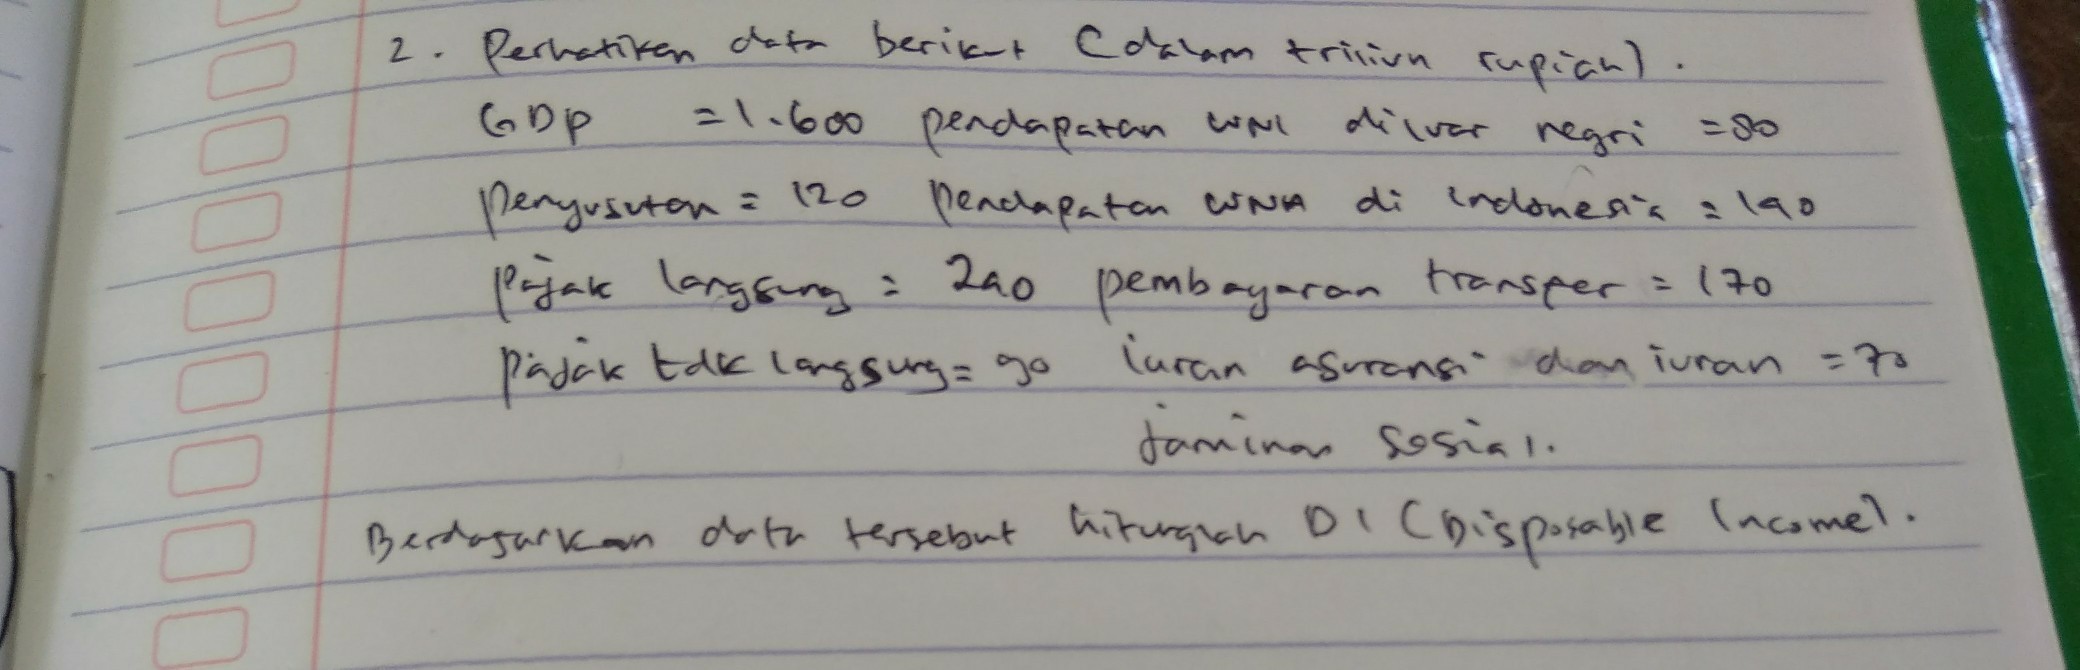 2. Perhatikan data berikut (dalam triliun rupiah).
GDP = 1.600 pendapatan WNI diluar negri = 80
Penyusutan = 120 Pendapatan WNA di indonesia = 190
Pajak langsung = 290 pembayaran transfer = 170
Pajak tdk langsung = 90 iuran asuransi dan iuran = 70
jaminan sosial.
Berdasarkan data tersebut hitunglah DI (Disposable Income).